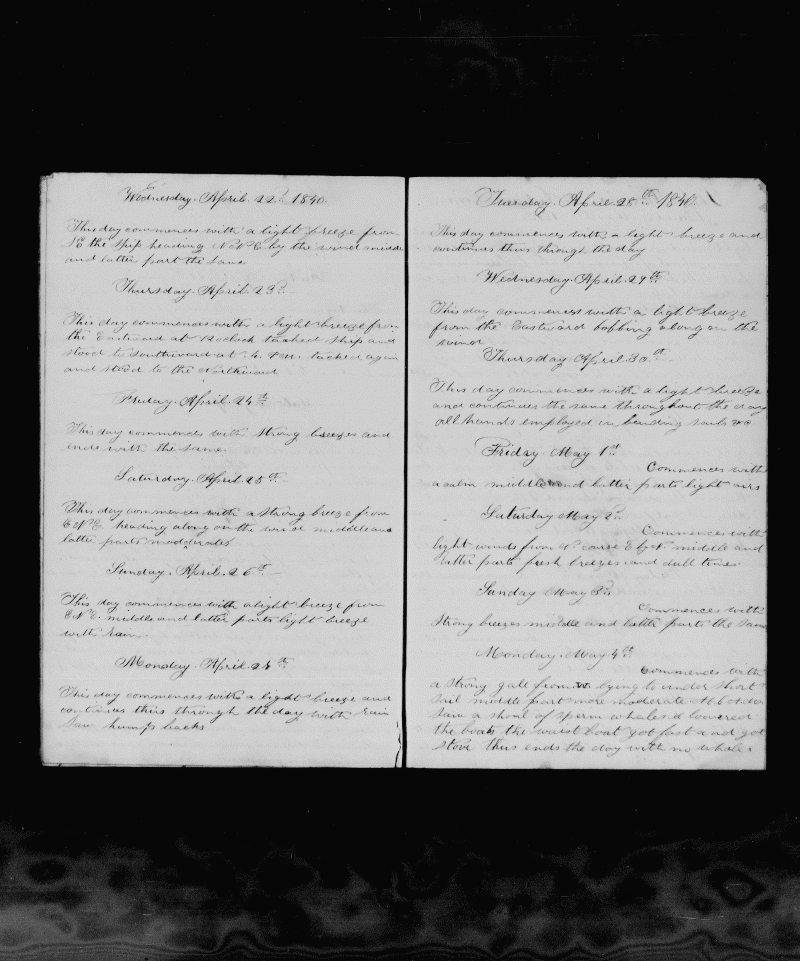 Wednesday. April. 22d 1840.
This day commences with a light breeze from
NE the ship heading N by E by the wind middle
and latter part the same
Thursday. April. 23d
This day commences with a light breeze from
the Eastward at 12 oclock tacked ship and
stood to Southward at 4. P.M. tacked again
and stood to the Northward
Friday. April. 24th
This day commences with strong breezes and
ends with the same.
Saturday. April. 25th
This day commences with a strong breeze from
ENE. heading along on the wind middle and
latter parts modderate
Sunday. April. 26th
This day commences with a light breeze from
ENE. middle and latter parts light breeze
with rain
Monday. April. 27th
This day commences with a light breeze and
continues thus through the day with rain
Saw humps backs
Tuesday. April. 28th 1840.
This day commences with a light breeze and
continues thus through the day
Wednesday. April. 29th
This day commences with a light breeze
from the Eastward bobbing along on the
wind
Thursday. April 30th
This day commences with a light breeze
and continues the same throughout the day
all hands employed in bending sails &c
Friday. May 1st
Commences with
a calm middle and latter parts light airs
Saturday May 2d
Commences with
light winds from N. course E by N. middle and
latter parts fresh breezes. and dull times.
Sunday May 3d.
Commences with
Strong breezes middle and latter parts the same
Monday. May 4th
Commences with
a Strong gale from W. lying to under Short
Sail middle part more moderate At 6
Saw a shoal of Sperm whales lowered
the boats the waist boat got fast and got
stove thus ends the day with no whale.